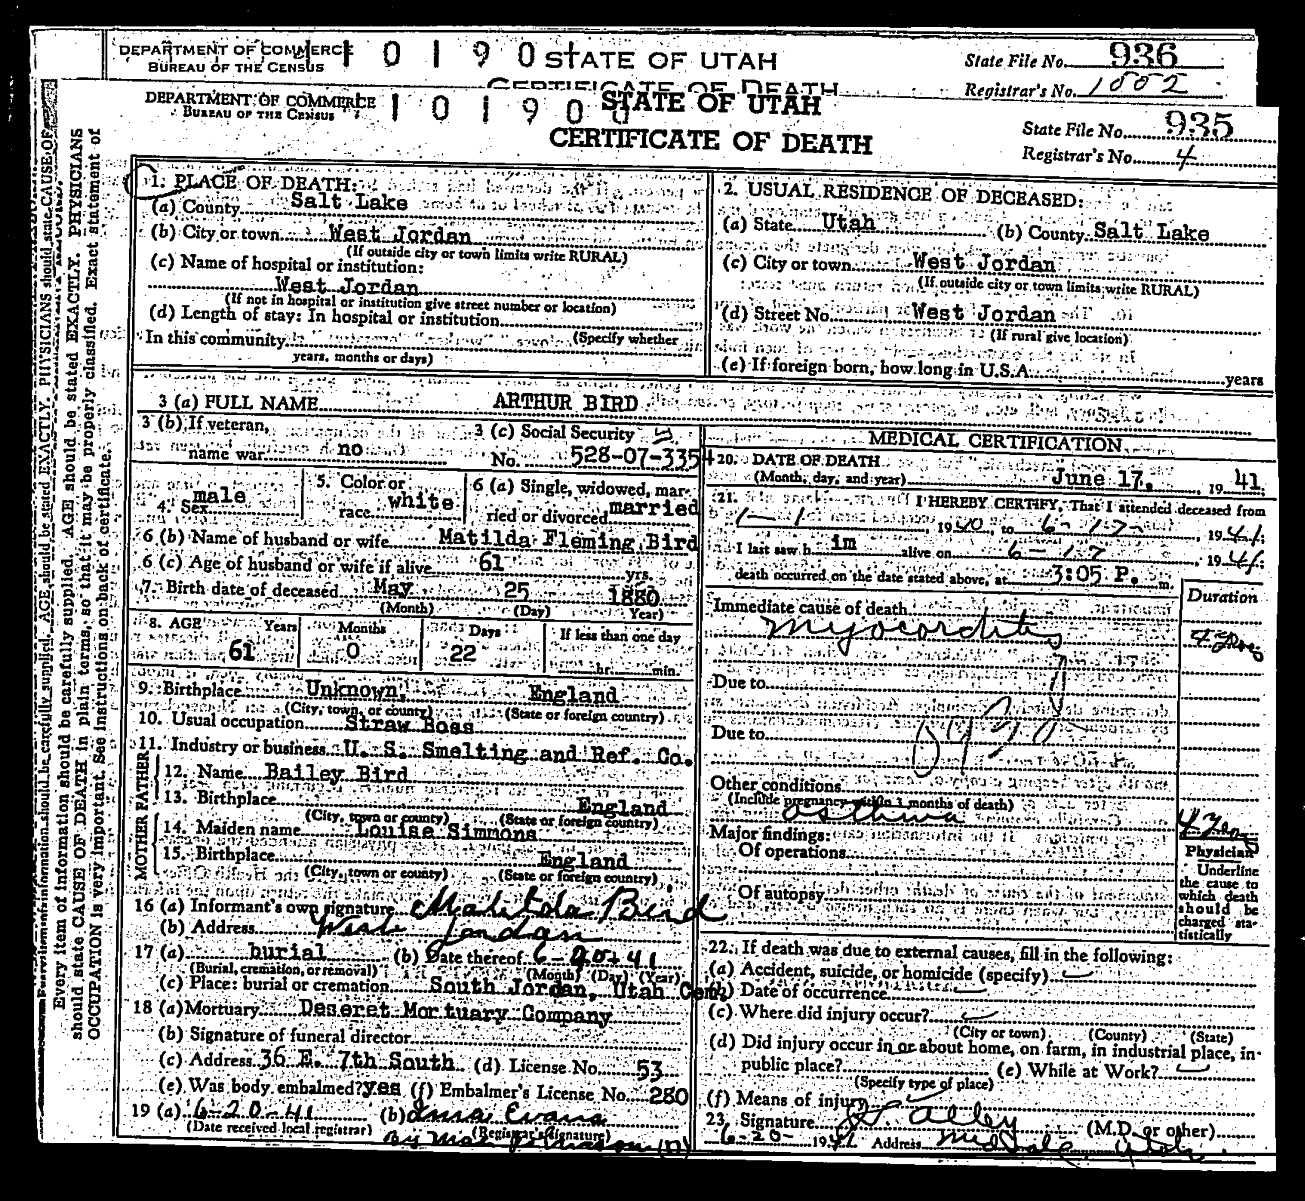 DEPARTMENT OF COMMERCE
BUREAU OF THE CENSUS
1 0 1 9 0
STATE OF UTAH
CERTIFICATE OF DEATH
State File No. 936
Registrar's No. 1882
DEPARTMENT OF COMMERCE
BUREAU OF THE CENSUS
1 0 1 9 0 0
STATE OF UTAH
CERTIFICATE OF DEATH
State File No. 935
Registrar's No. 4
Every item of information should be carefully supplied. AGE should be stated EXACTLY. PHYSICIANS
should state CAUSE OF DEATH in plain terms, so that it may be properly classified. Exact statement of
OCCUPATION is very important. See instructions on back of certificate.
1. PLACE OF DEATH:
(a) County Salt Lake
(b) City or town West Jordan
(If outside city or town limits write RURAL)
(c) Name of hospital or institution:
West Jordan
(If not in hospital or institution give street number or location)
(d) Length of stay: In hospital or institution
(Specify whether
In this community
years, months or days)
2. USUAL RESIDENCE OF DECEASED:
(a) State Utah (b) County Salt Lake
(c) City or town West Jordan
(If outside city or town limits write RURAL)
(d) Street No. West Jordan
(If rural give location)
(e) If foreign born, how long in U.S.A. years
3 (a) FULL NAME ARTHUR BIRD
3 (b) If veteran,
name war no
3 (c) Social Security
No. 528-07-3354
4. Sex male
5. Color or
race white
6 (a) Single, widowed, mar-
ried or divorced married
6 (b) Name of husband or wife Matilda Fleming Bird
6 (c) Age of husband or wife if alive 61 yrs.
7. Birth date of deceased May 25 1880
(Month) (Day) Year)
8. AGE Years Months Days If less than one day
61 0 22 hr. min.
9. Birthplace Unknown, England
(City, town, or county) (State or foreign country)
10. Usual occupation Straw Boss
11. Industry or business U. S. Smelting and Ref. Co.
MOTHER FATHER
12. Name Bailey Bird
13. Birthplace England
(City, town or county) (State or foreign country)
14. Maiden name Louise Simmons
15. Birthplace England
(City, town or county) (State or foreign country)
16 (a) Informant's own signature Matilda Bird
(b) Address West Jordan
17 (a) burial (b) Date thereof 6-20-41
(Burial, cremation, or removal) (Month) (Day) (Year)
(c) Place: burial or cremation South Jordan, Utah Cem.
18 (a) Mortuary Deseret Mortuary Company
(b) Signature of funeral director
(c) Address 36 E. 7th South (d) License No. 53
(e) Was body embalmed? yes (f) Embalmer's License No. 280
19 (a) 6-20-41 (b) Evans
(Date received local registrar) (Registrar's signature)
MEDICAL CERTIFICATION
20. DATE OF DEATH
(Month, day, and year) June 17, 1941
21. I HEREBY CERTIFY, That I attended deceased from
1-1 1940 to 6-17- 1941;
I last saw h im alive on 6-17 1941;
death occurred on the date stated above, at 3:05 P. m.
Duration
Immediate cause of death
Myocarditis
Due to
Due to
Other conditions
(Include pregnancy within 3 months of death)
asthma
Major findings:
Of operations
Of autopsy
Physician
Underline
the cause to
which death
should be
charged sta-
tistically
22. If death was due to external causes, fill in the following:
(a) Accident, suicide, or homicide (specify)
(b) Date of occurrence
(c) Where did injury occur?
(City or town) (County) (State)
(d) Did injury occur in or about home, on farm, in industrial place, in-
public place? (e) While at Work?
(Specify type of place)
(f) Means of injury
23. Signature Alley (M.D. or other)
6-20- 1941 Address Midvale Utah